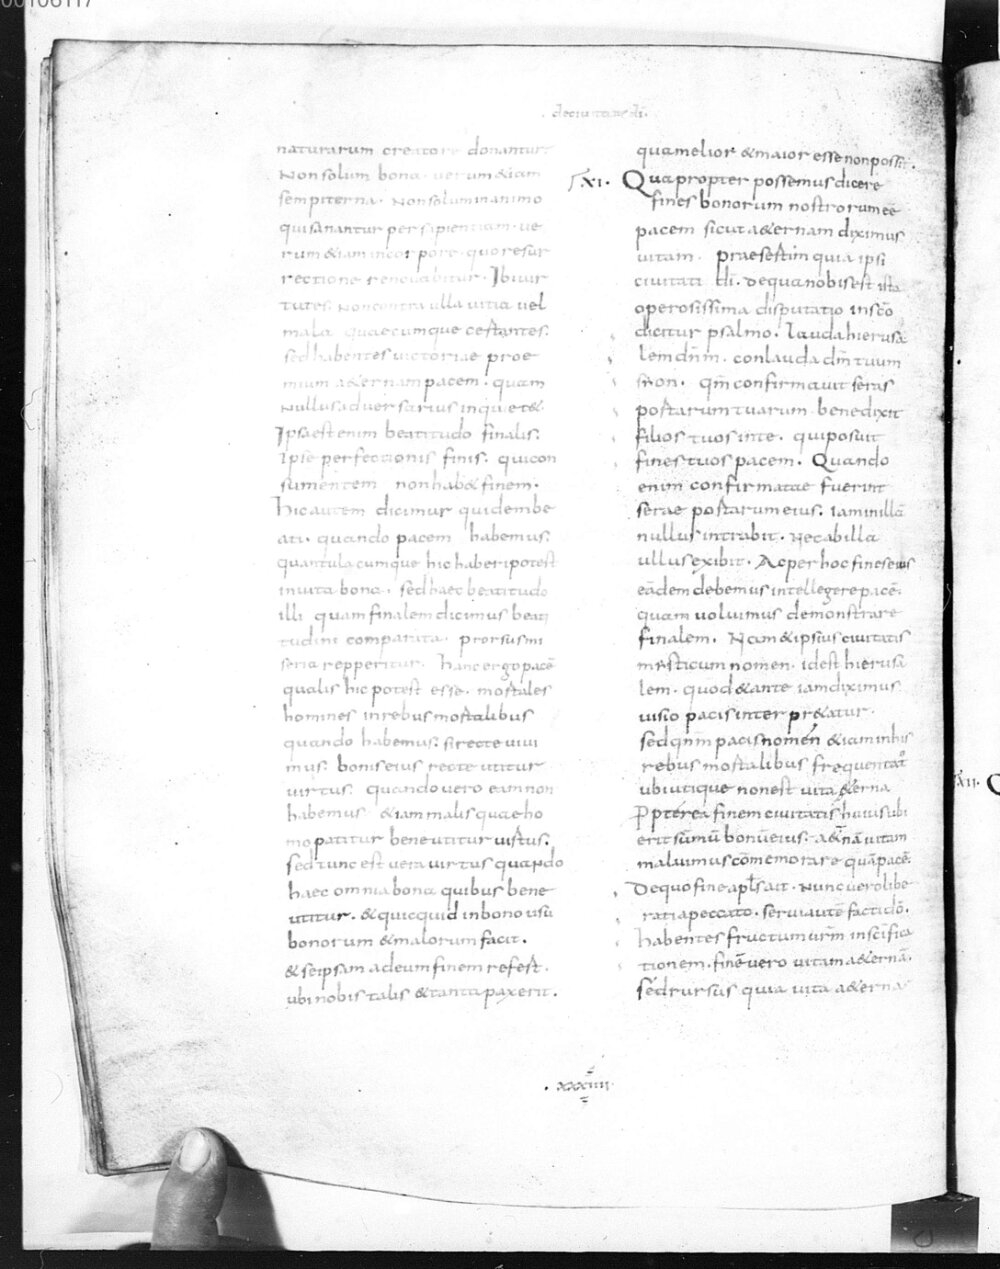 00106117
de ciuitate di
naturarum creatore donantur
Non solum bona uerum & iam
sempiterna. Non solum in animo
qui sanantur per sapientiam. ue
rum & iam in corpore quo resur
rectione renouabitur. Ibi uir
tutes non contra ulla uitia uel
mala quaecumque certantes.
sed habentes uictoriae proe
mium a&ernam pacem. quam
nullus aduersarius inqui&e&.
Ipsa est enim beatitudo finalis.
ipse perfectionis finis. qui con
sumentem non hab& finem.
hic autem dicimur quidem be
ati. quando pacem habemus.
quantulacumque hic haberi potest
in uita bona. sed haec beatitudo
illi quam finalem dicimus beati
tudini comparata. prorsus mi
seria repperitur. hanc ergo pacē
qualis hic potest esse. mortales
homines in rebus mortalibus
quando habemus. si recte uiui
mus. bonis eius recte utitur
uirtus. quando uero eam non
habemus. & iam malis quae ho
mo patitur bene utitur uirtus.
sed tunc est uera uirtus quando
haec omnia bona quibus bene
utitur. & quicquid in bono usu
bonorum & malorum facit.
& se ipsam ad eum finem refert.
ubi nobis talis & tanta pax erit.
qua melior & maior esse non possit.
XI. Quapropter possemus dicere
fines bonorum nostrorum eē
pacem sicut a&ernam diximus
uitam. praesertim quia ipsi
ciuitati di. de qua nobis est ista
operosissima disputatio in scō
dicitur psalmo. Lauda hierusa
lem dnm. conlauda dm tuum
sion. qm confirmauit seras
portarum tuarum. benedixit
filios tuos in te. qui posuit
fines tuos pacem. Quando
enim confirmatae fuerint
serae portarum eius. iam in illā
nullus intrabit. nec ab illa
ullus exibit. Ac per hoc fines eius
eādem debemus intellegere pacē.
quam uolumus demonstrare
finalem. Nam & ipsius ciuitatis
misticum nomen. id est hierusa
lem. quod & ante iam diximus
uisio pacis interpr&atur.
sed qm pacis nomen & iam in his
rebus mortalibus frequentat
ubi utique non est uita a&erna
Ppterea finem ciuitatis huius ubi
erit sūmū bonū eius. a&nā uitam
maluimus cōmemorare quā pacē.
De quo fine apls ait. Nunc uero libe
rati a peccato. serui autē facti dō.
habentes fructum urm in scifica
tionem. finē uero uitam a&ernā.
sed rursus quia uita a&erna
XII.
. xxxiiii.